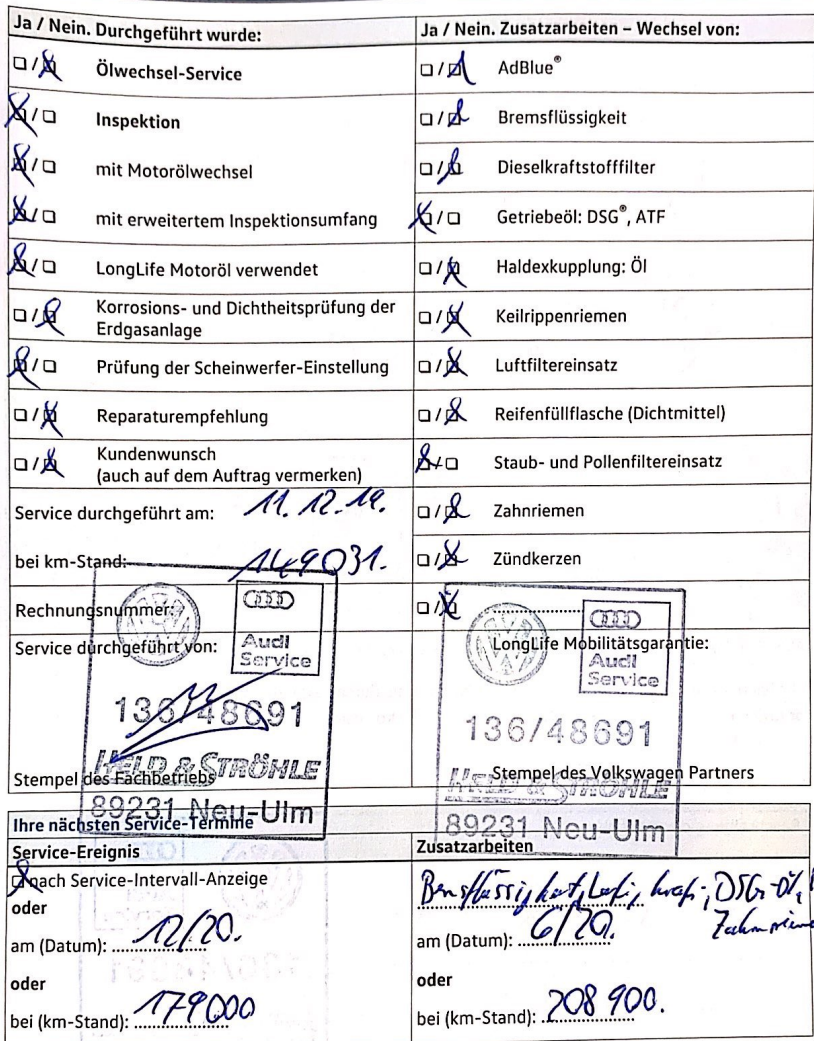 Ja / Nein. Durchgeführt wurde:
Ölwechsel-Service
Inspektion
mit Motorölwechsel
mit erweitertem Inspektionsumfang
LongLife Motoröl verwendet
Korrosions- und Dichtheitsprüfung der
Erdgasanlage
Prüfung der Scheinwerfer-Einstellung
Reparaturempfehlung
Kundenwunsch
(auch auf dem Auftrag vermerken)
Service durchgeführt am: 11.12.19.
bei km-Stand: 149031.
Rechnungsnummer:
Service durchgeführt von:
Audi
Service
136/48691
HELD & STRÖHLE
Stempel des Fachbetriebs
89231 Neu-Ulm
Ja / Nein. Zusatzarbeiten – Wechsel von:
AdBlue®
Bremsflüssigkeit
Dieselkraftstofffilter
Getriebeöl: DSG®, ATF
Haldexkupplung: Öl
Keilrippenriemen
Luftfiltereinsatz
Reifenfüllflasche (Dichtmittel)
Staub- und Pollenfiltereinsatz
Zahnriemen
Zündkerzen
LongLife Mobilitätsgarantie:
Audi
Service
136/48691
HELD & STRÖHLE
Stempel des Volkswagen Partners
89231 Neu-Ulm
Ihre nächsten Service-Termine
Service-Ereignis
nach Service-Intervall-Anzeige
oder
am (Datum): 12/20.
oder
bei (km-Stand): 179000
Zusatzarbeiten
DSG-Öl,
am (Datum): 6/20.
oder
bei (km-Stand): 208 900.